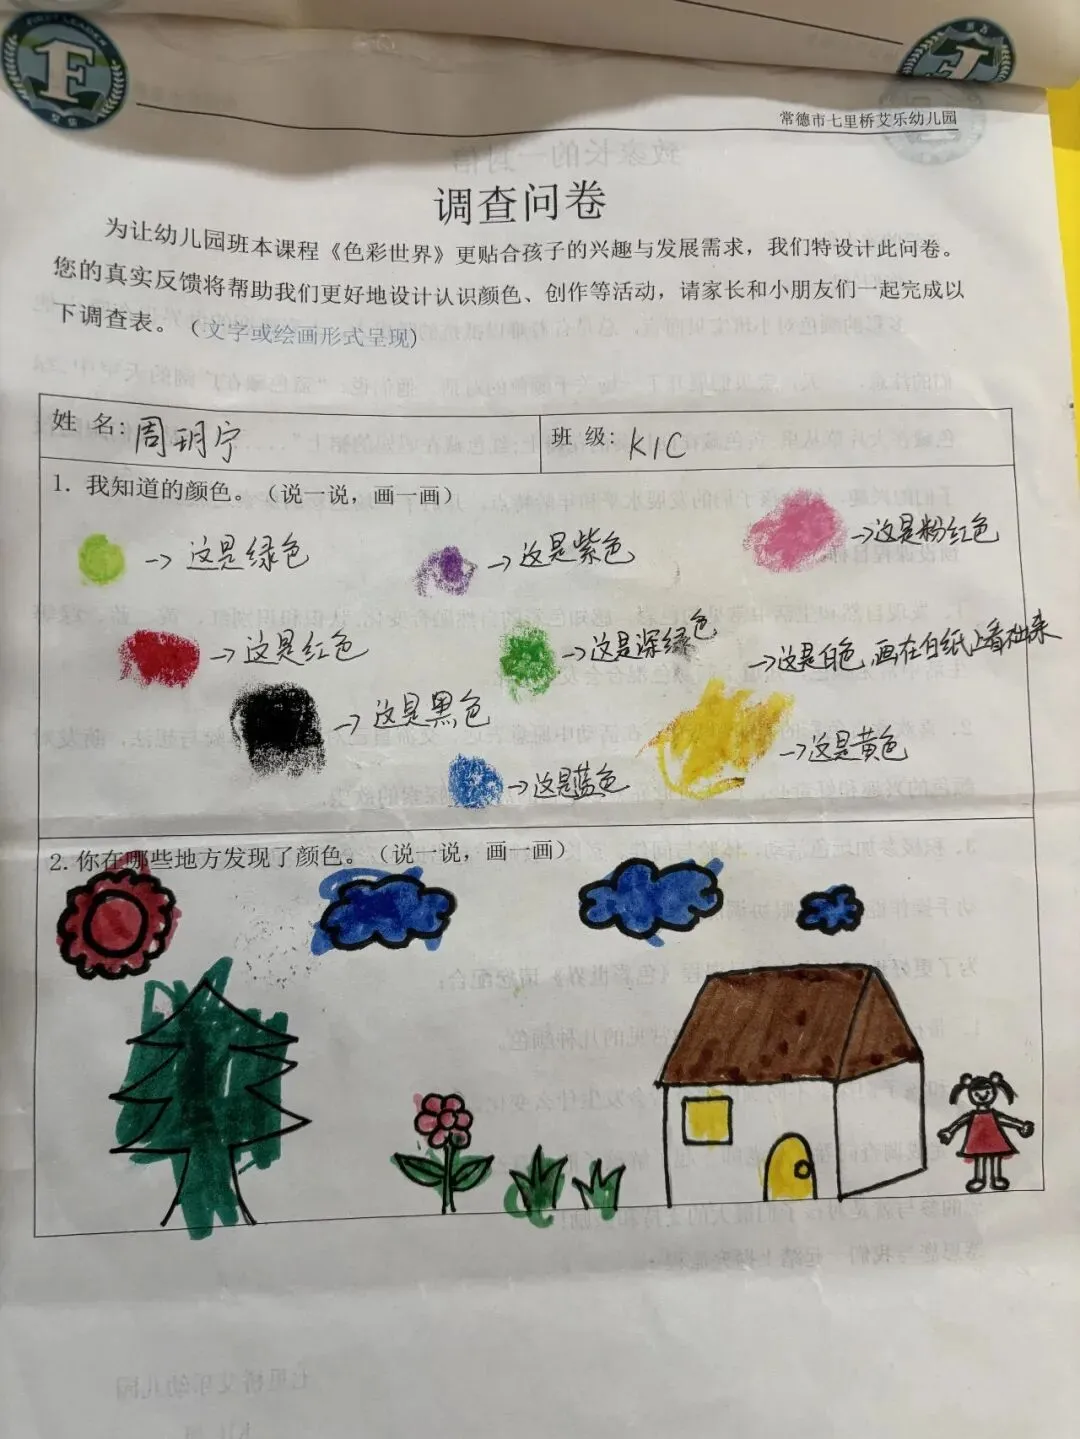 FIRST LEADER
F
常德市七里桥艾乐幼儿园
调查问卷
为让幼儿园班本课程《色彩世界》更贴合孩子的兴趣与发展需求，我们特设计此问卷。
您的真实反馈将帮助我们更好地设计认识颜色、创作等活动，请家长和小朋友们一起完成以
下调查表。（文字或绘画形式呈现）
姓 名：周玥宁 班 级：K1C
1. 我知道的颜色。（说一说，画一画）
→这是绿色 →这是紫色 →这是粉红色
→这是红色 →这是深绿色 →这是白色,画在白纸上看不出来
→这是黑色 →这是黄色
→这是蓝色
2. 你在哪些地方发现了颜色。（说一说，画一画）